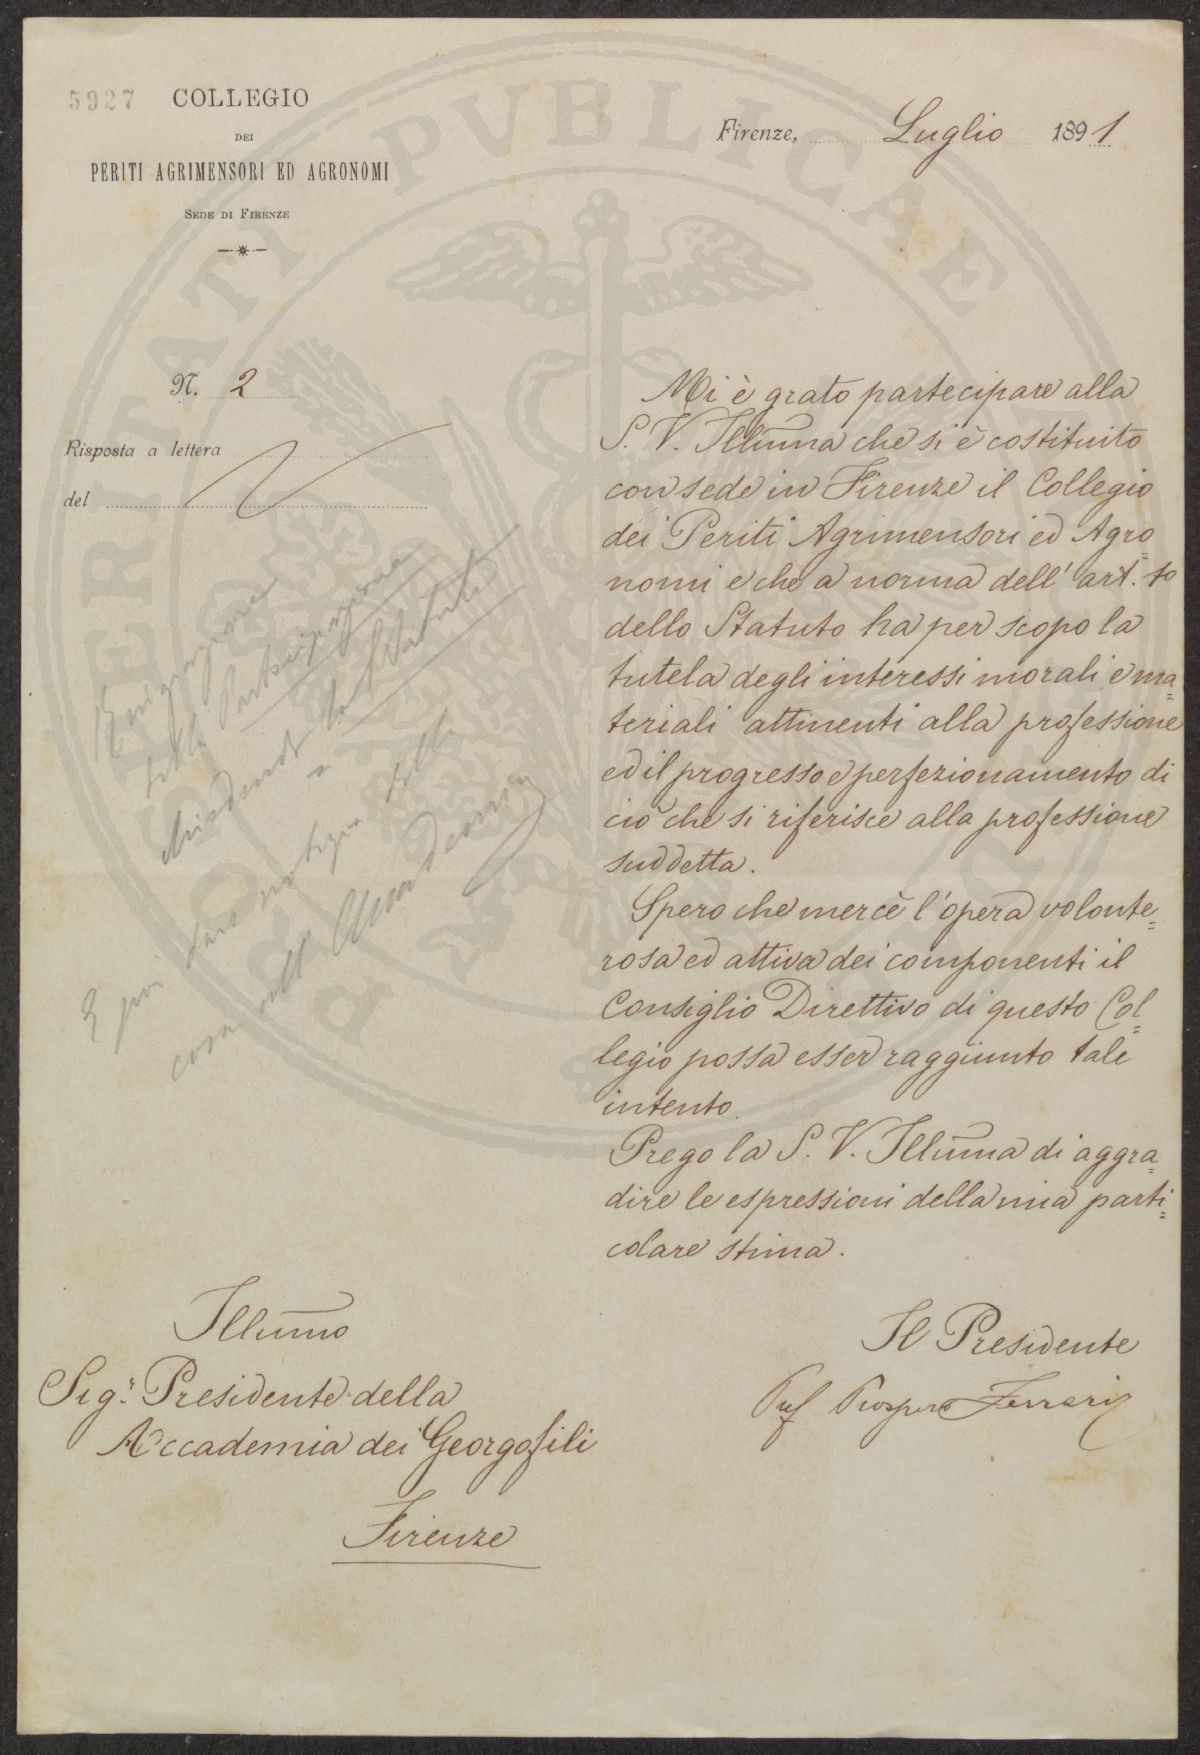 5927 COLLEGIO
DEI
PERITI AGRIMENSORI ED AGRONOMI
SEDE DI FIRENZE
Firenze, Luglio 1891
N. 2
Risposta a lettera
del
Mi è grato partecipare alla
S. V. Illuma che si è costituito
con sede in Firenze il Collegio
dei Periti Agrimensori ed Agro=
nomi e che a norma dell' art.
dello Statuto ha per scopo la
tutela degli interessi morali e ma=
teriali attinenti alla professione
ed il progresso e perfezionamento di
ciò che si riferisce alla professione
suddetta.
Spero che mercè l'opera volonte=
rosa ed attiva dei componenti il
Consiglio Direttivo di questo Col=
legio possa esser raggiunto tale
intento.
Prego la S. V. Illuma di aggra=
dire le espressioni della mia parti=
colare stima.
Il Presidente
Prof Prospero Ferrari
Illumo
Sigr. Presidente della
Accademia dei Georgofili
Firenze
della Partecipazione
chiedendo lo Statuto
E poi dare notizia della
cosa nella
PVBLICAE